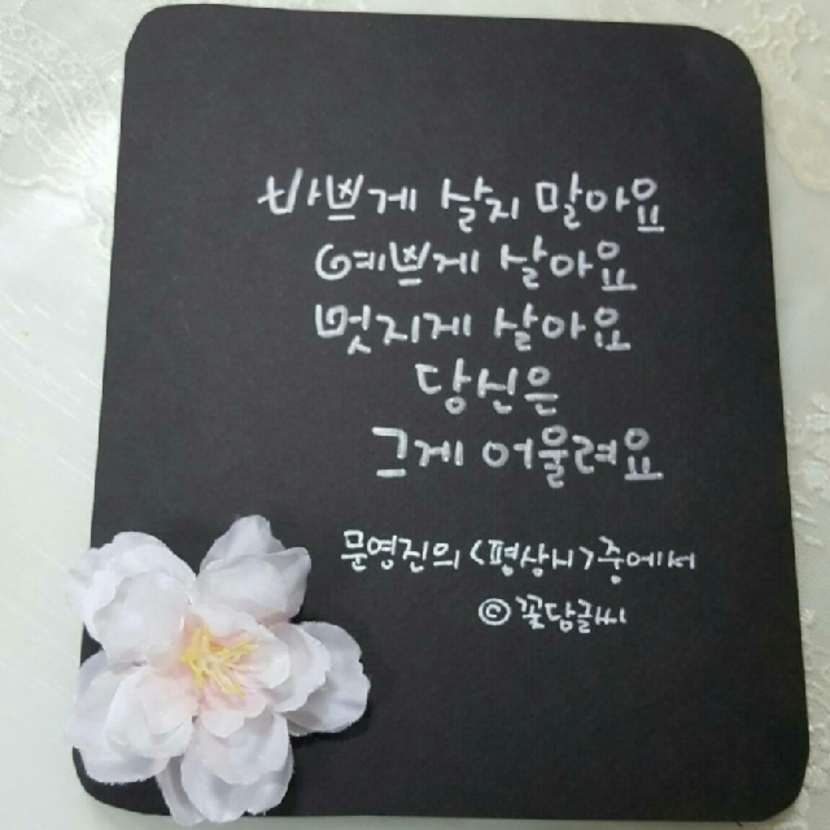 바쁘게 살지 말아요
예쁘게 살아요
멋지게 살아요
당신은
그게 어울려요
문영진의 <평상시> 중에서
©꽃담글씨